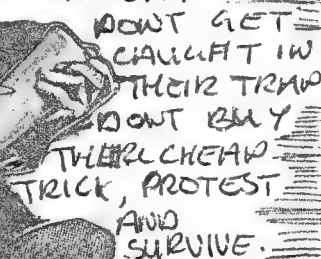 DONT GET
CAUGHT IN
THEIR TRAP
DONT BUY
THEIR CHEAP
TRICK, PROTEST
AND
SURVIVE.